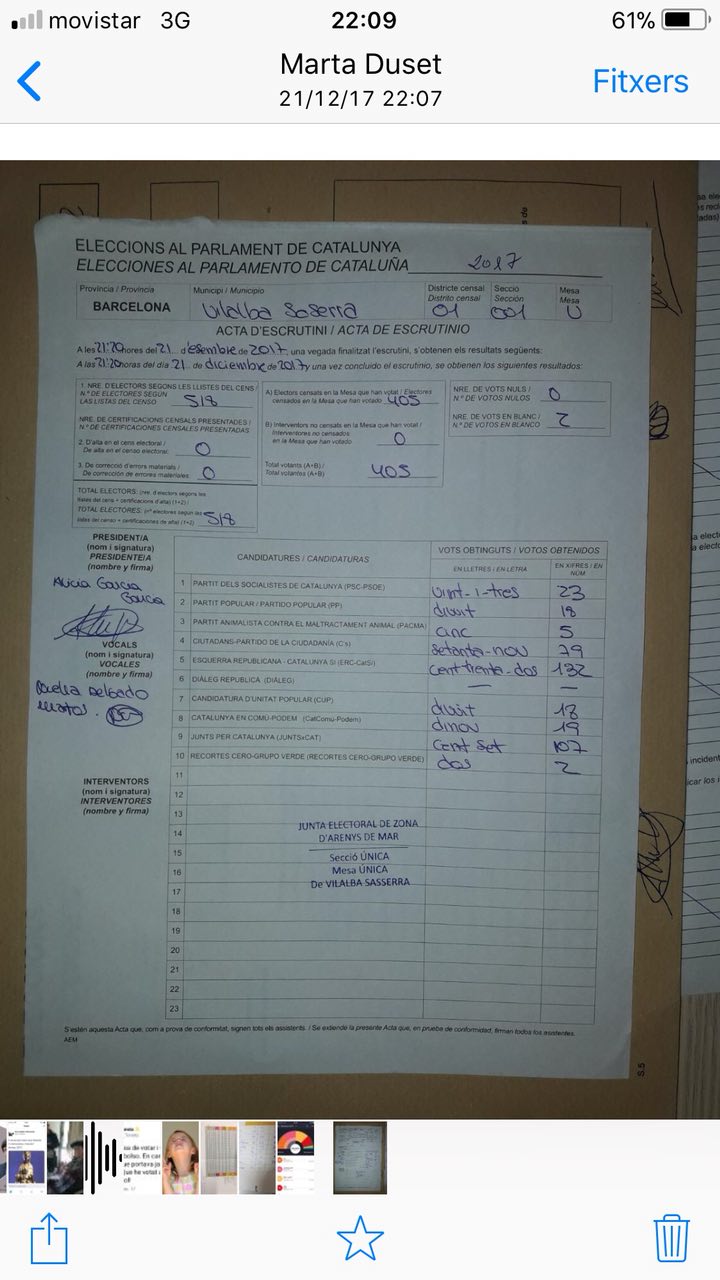 movistar 3G 22:09 61%
Marta Duset
21/12/17 22:07
Fitxers
ELECCIONS AL PARLAMENT DE CATALUNYA
ELECCIONES AL PARLAMENTO DE CATALUÑA 2017
Província / Provincia
BARCELONA
Municipi / Municipio
Vilalba Saserra
Districte censal
Distrito censal
01
Secció
Sección
001
Mesa
Mesa
U
ACTA D'ESCRUTINI / ACTA DE ESCRUTINIO
A les 21:20 hores del 21 d'esembre de 2017, una vegada finalitzat l'escrutini, s'obtenen els resultats següents:
A las 21:20 horas del día 21 de diciembre de 2017 y una vez concluido el escrutinio, se obtienen los siguientes resultados:
1. NRE. D'ELECTORS SEGONS LES LLISTES DEL CENS /
N.º DE ELECTORES SEGÚN
LAS LISTAS DEL CENSO 518
NRE. DE CERTIFICACIONS CENSALS PRESENTADES /
N.º DE CERTIFICACIONES CENSALES PRESENTADAS
2. D'alta en el cens electoral /
De alta en el censo electoral: 0
3. De correcció d'errors materials /
De corrección de errores materiales: 0
TOTAL ELECTORS: (nre. d'electors segons les
llistes del cens + certificacions d'alta) (1+2) /
TOTAL ELECTORES: (nº electores según las
listas del censo + certificaciones de alta) (1+2) 518
A) Electors censats en la Mesa que han votat / Electores
censados en la Mesa que han votado 405
B) Interventors no censats en la Mesa que han votat /
Interventores no censados
en la Mesa que han votado 0
Total votants (A+B) /
Total votantes (A+B) 405
NRE. DE VOTS NULS /
N.º DE VOTOS NULOS 0
NRE. DE VOTS EN BLANC /
N.º DE VOTOS EN BLANCO 2
PRESIDENT/A
(nom i signatura)
PRESIDENTE/A
(nombre y firma)
Alicia Garcia
Garcia
VOCALS
(nom i signatura)
VOCALES
(nombre y firma)
Delgado
INTERVENTORS
(nom i signatura)
INTERVENTORES
(nombre y firma)
CANDIDATURES / CANDIDATURAS
VOTS OBTINGUTS / VOTOS OBTENIDOS
EN LLETRES / EN LETRA
EN XIFRES / EN NÚM
1 PARTIT DELS SOCIALISTES DE CATALUNYA (PSC-PSOE) vint-i-tres 23
2 PARTIT POPULAR / PARTIDO POPULAR (PP) divuit 18
3 PARTIT ANIMALISTA CONTRA EL MALTRACTAMENT ANIMAL (PACMA) cinc 5
4 CIUTADANS-PARTIDO DE LA CIUDADANÍA (C's) setanta-nou 79
5 ESQUERRA REPUBLICANA - CATALUNYA SÍ (ERC-CatSí) cent trenta-dos 132
6 DIÀLEG REPUBLICÀ (DIÀLEG) — —
7 CANDIDATURA D'UNITAT POPULAR (CUP) divuit 18
8 CATALUNYA EN COMÚ-PODEM (CatComú-Podem) dinou 19
9 JUNTS PER CATALUNYA (JUNTSxCAT) cent set 107
10 RECORTES CERO-GRUPO VERDE (RECORTES CERO-GRUPO VERDE) dos 2
11
12
13
14
15
16
17
18
19
20
21
22
23
JUNTA ELECTORAL DE ZONA
D'ARENYS DE MAR
Secció ÚNICA
Mesa ÚNICA
De VILALBA SASSERRA
S'estén aquesta Acta que, com a prova de conformitat, signen tots els assistents. / Se extiende la presente Acta que, en prueba de conformidad, firman todos los asistentes.
AEM
S.5